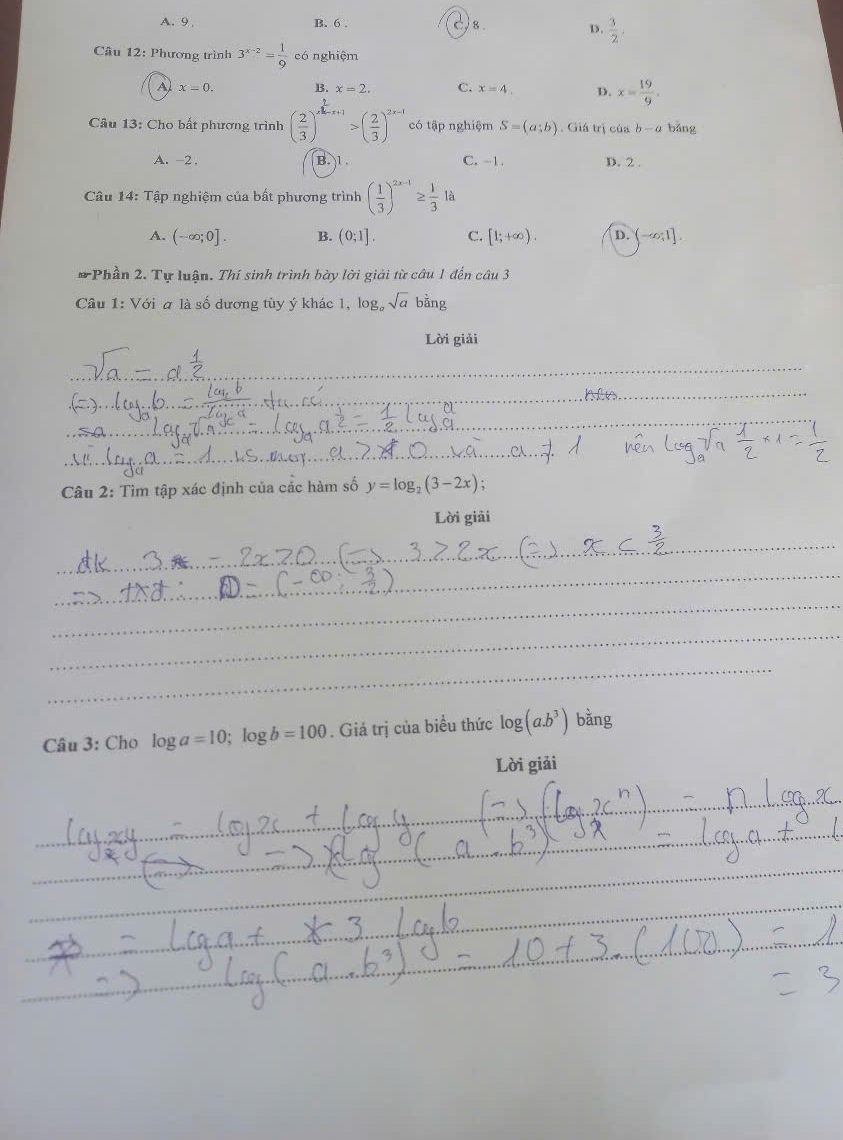 A. 9. B. 6. C. 8. D. 3/2.
Câu 12: Phương trình 3^(x-2) = 1/9 có nghiệm
A. x = 0. B. x = 2. C. x = 4. D. x = 19/9.
Câu 13: Cho bất phương trình (2/3)^(x²-x+1) > (2/3)^(2x-1) có tập nghiệm S = (a;b). Giá trị của b - a bằng
A. -2. B. 1. C. -1. D. 2.
Câu 14: Tập nghiệm của bất phương trình (1/3)^(2x-1) ≥ 1/3 là
A. (-∞;0]. B. (0;1]. C. [1;+∞). D. (-∞;1].
☞Phần 2. Tự luận. Thí sinh trình bày lời giải từ câu 1 đến câu 3
Câu 1: Với a là số dương tùy ý khác 1, logₐ √a bằng
Lời giải
√a = a^(1/2)
ta có
= 1/2 log
a = 1 và a ≠ 1 nên logₐ √a 1/2 × 1 = 1/2
Câu 2: Tìm tập xác định của các hàm số y = log₂(3-2x);
Lời giải
đk 3 - 2x > 0 (=) 3 > 2x (=) x < 3/2
=> txđ: D = (-∞; 3/2)
Câu 3: Cho log a = 10; log b = 100. Giá trị của biểu thức log(a.b³) bằng
Lời giải
log xy = log x + log y (=) (log x^n) = n log x
=> log (a . b³) = log a +
= log a + 3 log b
=> log (a . b³) = 10 + 3 . (100) =
= 3